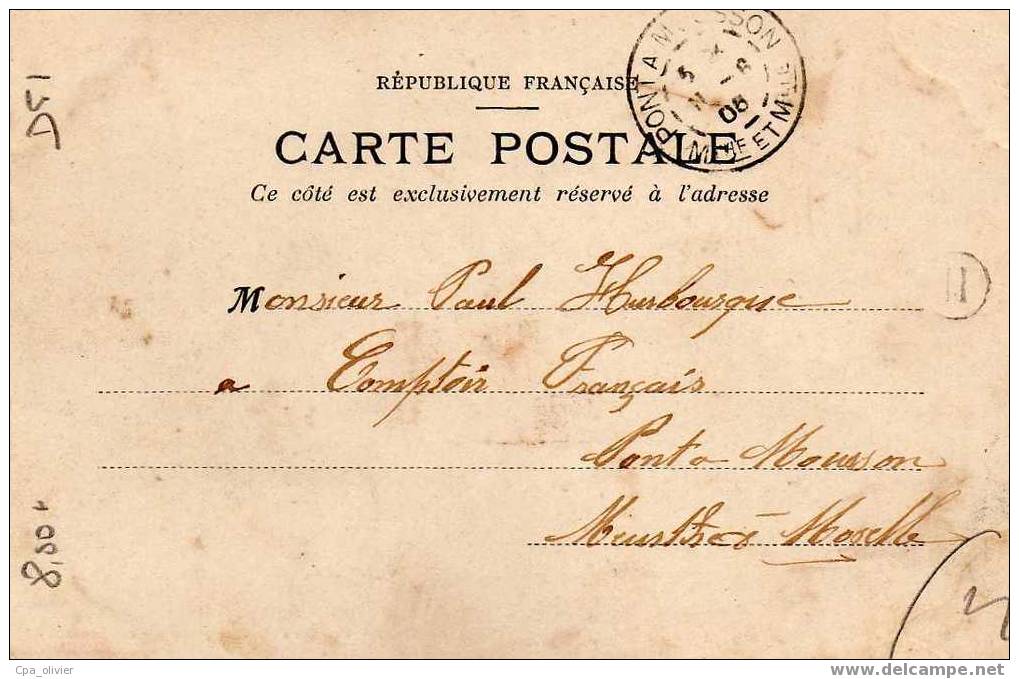 PONT A MOUSSON
5
11 - 8
05
MTHE ET MLLE
D51
RÉPUBLIQUE FRANÇAISE
CARTE POSTALE
Ce côté est exclusivement réservé à l'adresse
Monsieur Paul Hurbourque
H
a Comptoir Français
Pont a Mousson
Meurthe Moselle
8,50
Cpa_olivier
www.delcampe.net